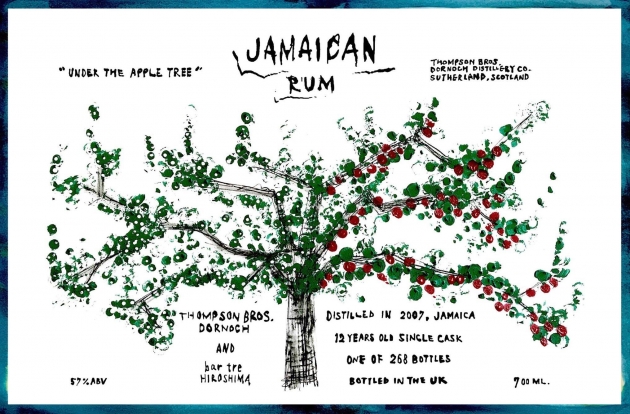 JAMAICAN
RUM
"UNDER THE APPLE TREE"
THOMPSON BROS.
DORNOCH DISTILLERY CO.
SUTHERLAND, SCOTLAND
THOMPSON BROS.
DORNOCH
AND
bar tre
HIROSHIMA
DISTILLED IN 2007, JAMAICA
12 YEARS OLD SINGLE CASK
ONE OF 268 BOTTLES
BOTTLED IN THE UK
57% ABV
700 ML.